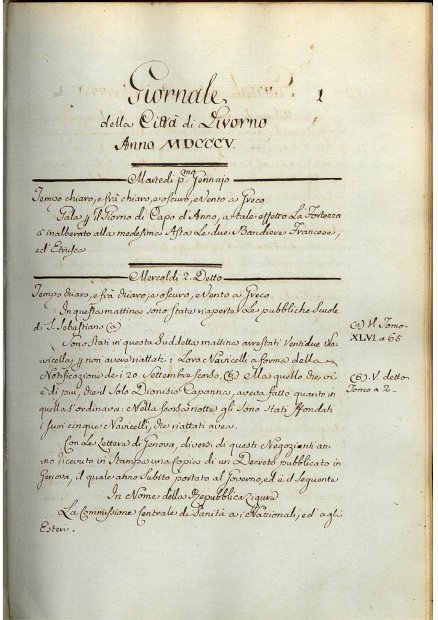 Giornale
1
della Città di Livorno
Anno MDCCCV.
Martedì p.mo Gennajo
Tempo chiaro, e frà chiaro, e oscuro, e Vento a Greco.
Gala p il Giorno di Capo d'Anno, a tale effetto La Fortezza
à inalberato alla medesima Asta Le due Bandiere Francese,
ed' Etrusca
Mercoldì 2. Detto
Tempo chiaro, e frà chiaro, e oscuro, e Vento a Greco.
In questa mattina sono state riaperte Le pubbliche Scuole
di S. Sebastiano (a)
(a) V. Tomo
XLVI. a 65
Sono Stati in questa Suddetta mattina arrestati Ventidue Na-
vicellaj p non avere riattati i Loro Navicelli a forma della
Notificazione de i 20. Settembre scorso. (b) Ma quello che vi
(b) V. detto
Tomo a 2
è di più, che il Solo Dionisio Capanna, aveva fatto quanto in
quella s'ordinava: Nella scorsa notte gli Sono Stati affondati
i suoi cinque Navicelli, che riattati avea.
Con Le Lettere di Genova, diversi di questi Negozianti an-
no ricevuto in Stampa una Copia di un Decreto pubblicato in
Genova, il quale anno Subito portato al Governo, ed è il seguente
In Nome della Repubblica Ligure
La Commissione Centrale di Sanità a i Nazionali, ed' agli
Esteri.